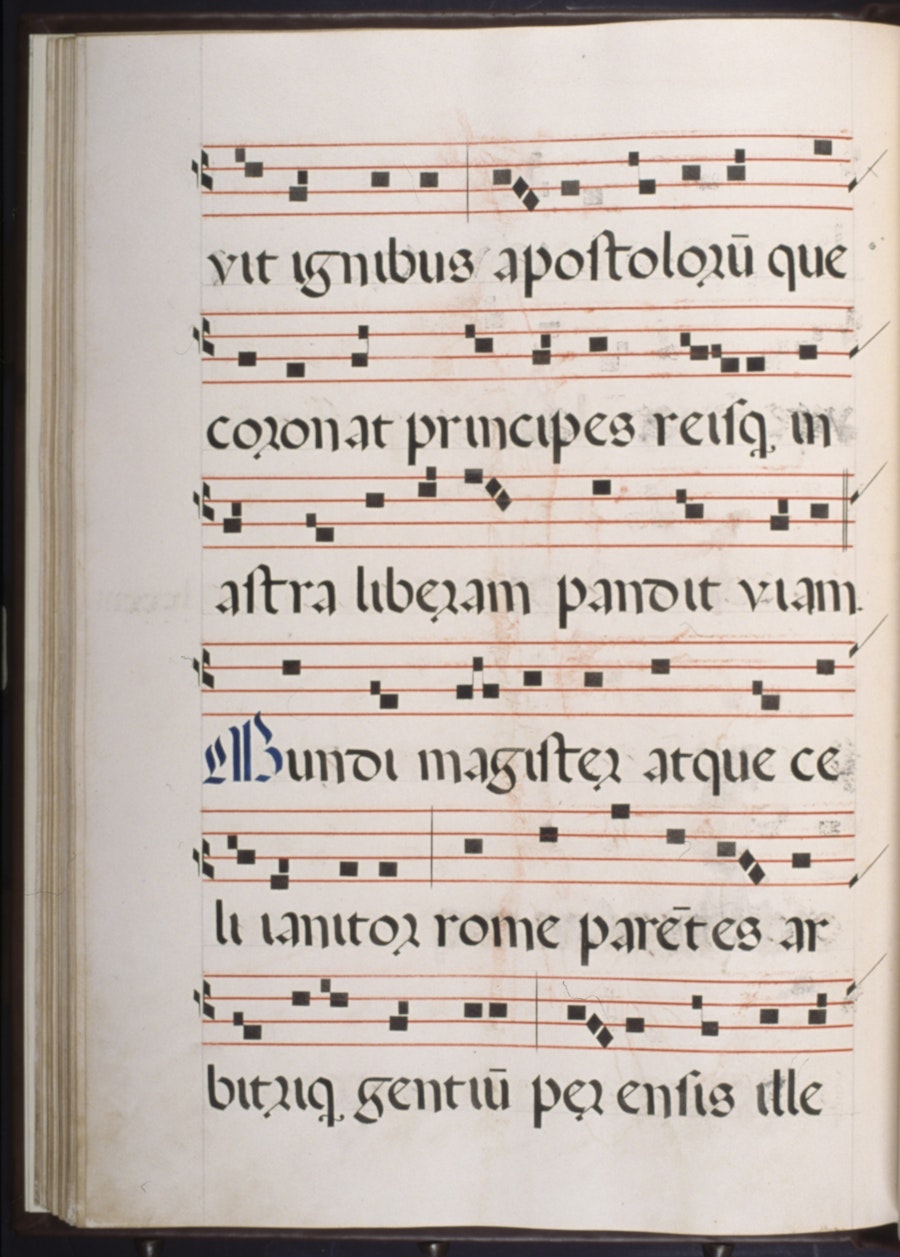 vit ignibus apostolorū que
coronat principes reisq. in
astra liberam pandit viam.
Mundi magister atque ce
li ianitor rome parētes ar
bitriq. gentiū per ensis ille